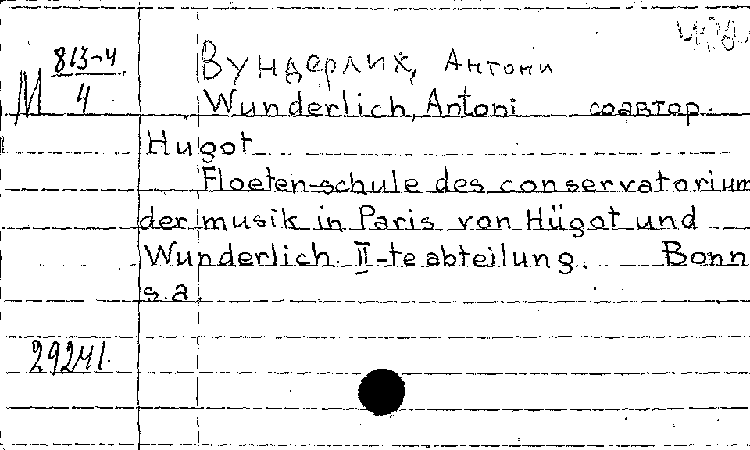 М 813-4/4
Вундерлих, Антони
Wunderlich, Antoni соавтор.
Hugot
Floeten-schule des conservatorium
der musik in Paris von Hügot und
Wunderlich. II-te abteilung. Bonn
s.a.
29241.